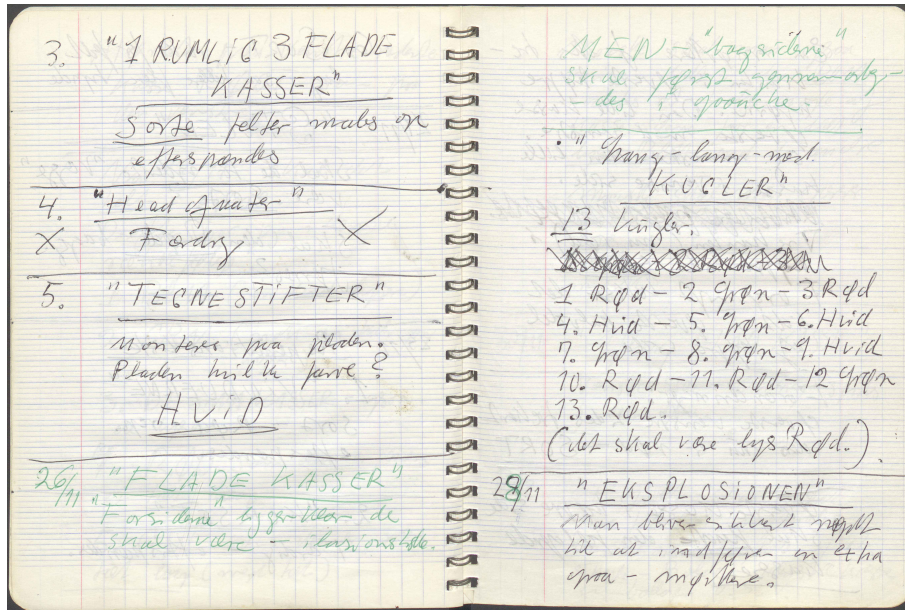 3. "1 RUMLIG 3 FLADE
KASSER"
Sorte felter males op
efterspændes
4. "Head of water"
X Færdig X
5. "TEGNESTIFTER"
Monteres paa pladen.
Pladen hvilken farve?
HVID
26/11 "FLADE KASSER"
"Forsiderne" ligger klar de
skal være –
MEN – "bagsiderne"
skal først gennemarbej-
des i gouache.
"
KUGLER"
13 kugler.
1 Rød – 2 Grøn – 3 Rød
4. Hvid – 5. Grøn – 6. Hvid
7. Grøn – 8. Grøn – 9. Hvid
10. Rød – 11. Rød – 12 Grøn
13. Rød.
(det skal være lys Rød.)
28/11 "EKSPLOSIONEN"
Man bliver sikkert nødt
til at indføre en extra
graa –